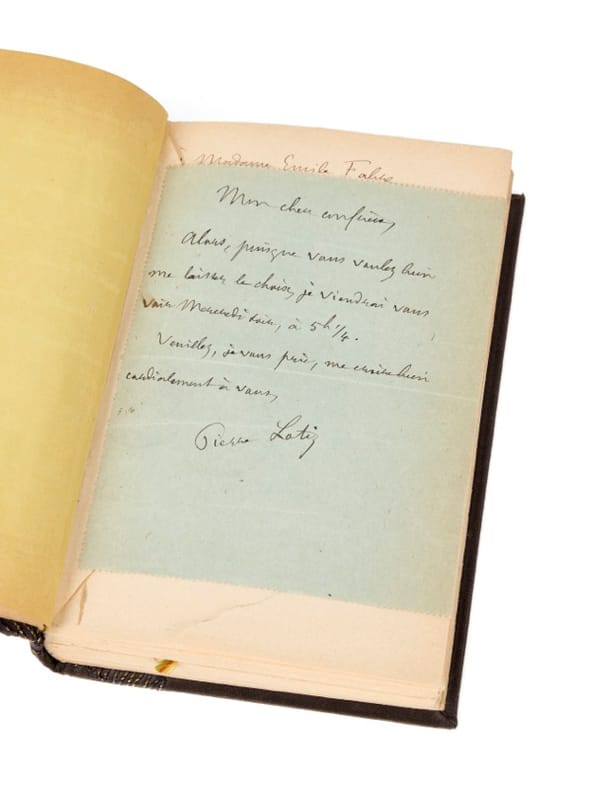 à Madame Emile Fabre
Mon cher confrère,
Alors, puisque vous voulez bien
me laisser le choix, je viendrai vous
voir Mercredi soir, à 5h 1/4.
Veuillez, je vous prie, me croire bien
cordialement à vous,
Pierre Loti